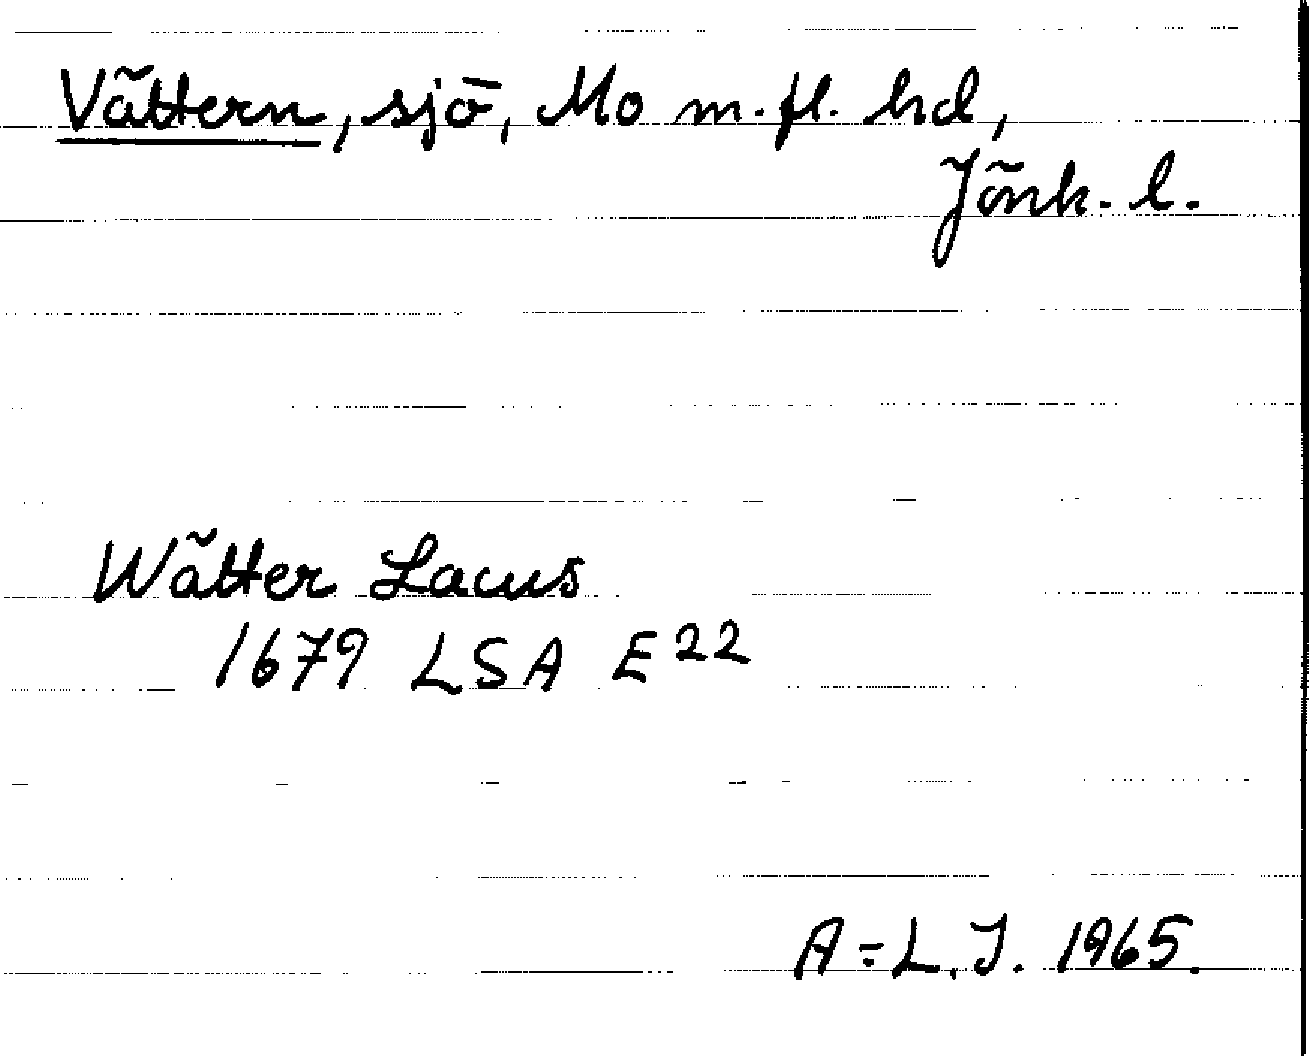 Vättern, sjö, Mo m.fl. hd,
Jönk. l.
Wätter Lacus
1679 LSA E22
A=L.J. 1965.